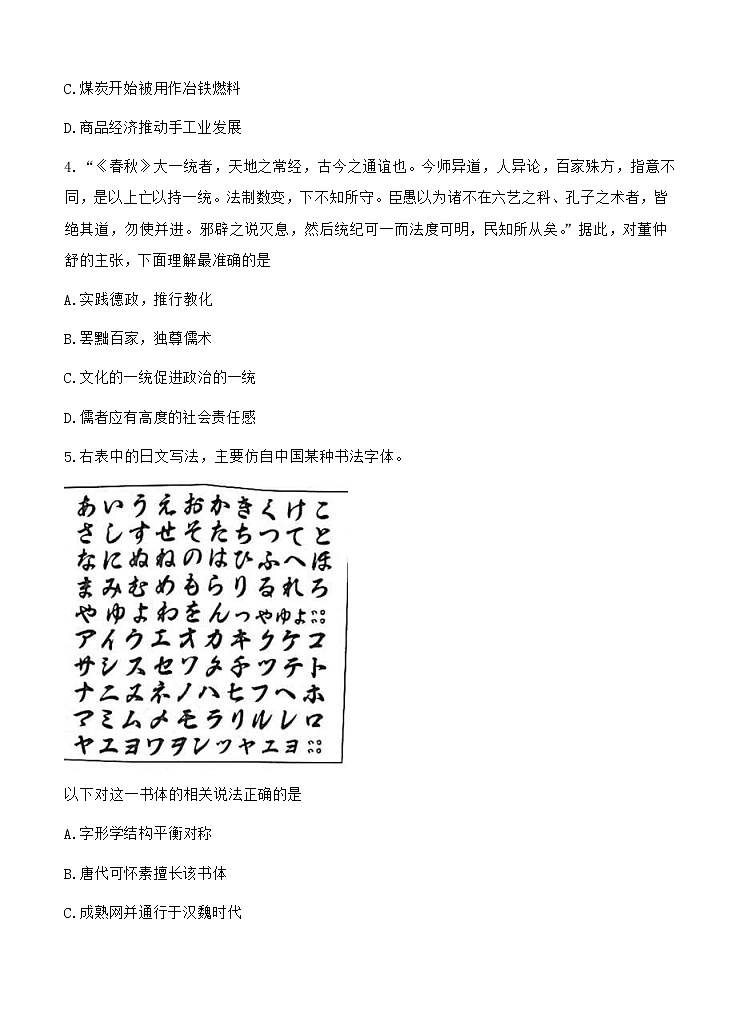 C.煤炭开始被用作冶铁燃料
D.商品经济推动手工业发展
4.“《春秋》大一统者，天地之常经，古今之通谊也。今师异道，人异论，百家殊方，指意不
同，是以上亡以持一统。法制数变，下不知所守。臣愚以为诸不在六艺之科、孔子之术者，皆
绝其道，勿使并进。邪辟之说灭息，然后统纪可一而法度可明，民知所从矣。”据此，对董仲
舒的主张，下面理解最准确的是
A.实践德政，推行教化
B.罢黜百家，独尊儒术
C.文化的一统促进政治的一统
D.儒者应有高度的社会责任感
5.右表中的日文写法，主要仿自中国某种书法字体。
あいうえおかきくけこ
さしすせそたちつてと
なにぬねのはひふへほ
まみむめもらりるれろ
やゆよわをんっゃゅょ
アイウエオカキクケコ
サシスセソタチツテト
ナニヌネノハヒフヘホ
マミムメモラリルレロ
ヤユヨワヲンッャュョ
以下对这一书体的相关说法正确的是
A.字形学结构平衡对称
B.唐代可怀素擅长该书体
C.成熟网并通行于汉魏时代